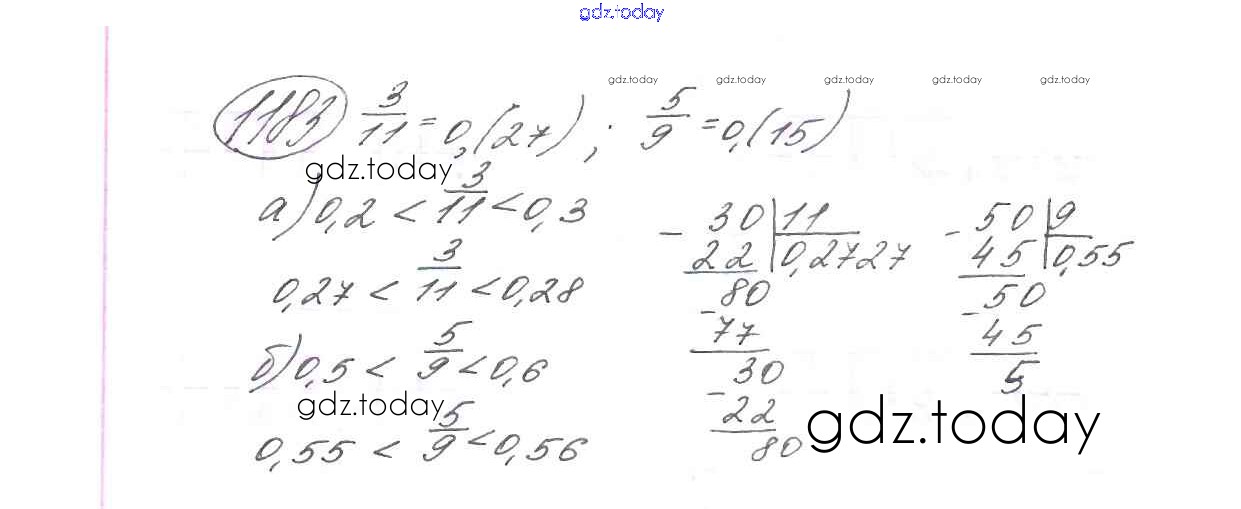 gdz.today
gdz.today gdz.today gdz.today gdz.today gdz.today
1183 3/11 = 0,(27) ; 5/9 = 0,(15)
gdz.today
а) 0,2 < 3/11 < 0,3
0,27 < 3/11 < 0,28
б) 0,5 < 5/9 < 0,6
gdz.today
0,55 < 5/9 < 0,56
- 30 | 11
22 | 0,2727
- 80
77
- 30
22
80
- 50 | 9
45 | 0,55
- 50
45
5
gdz.today